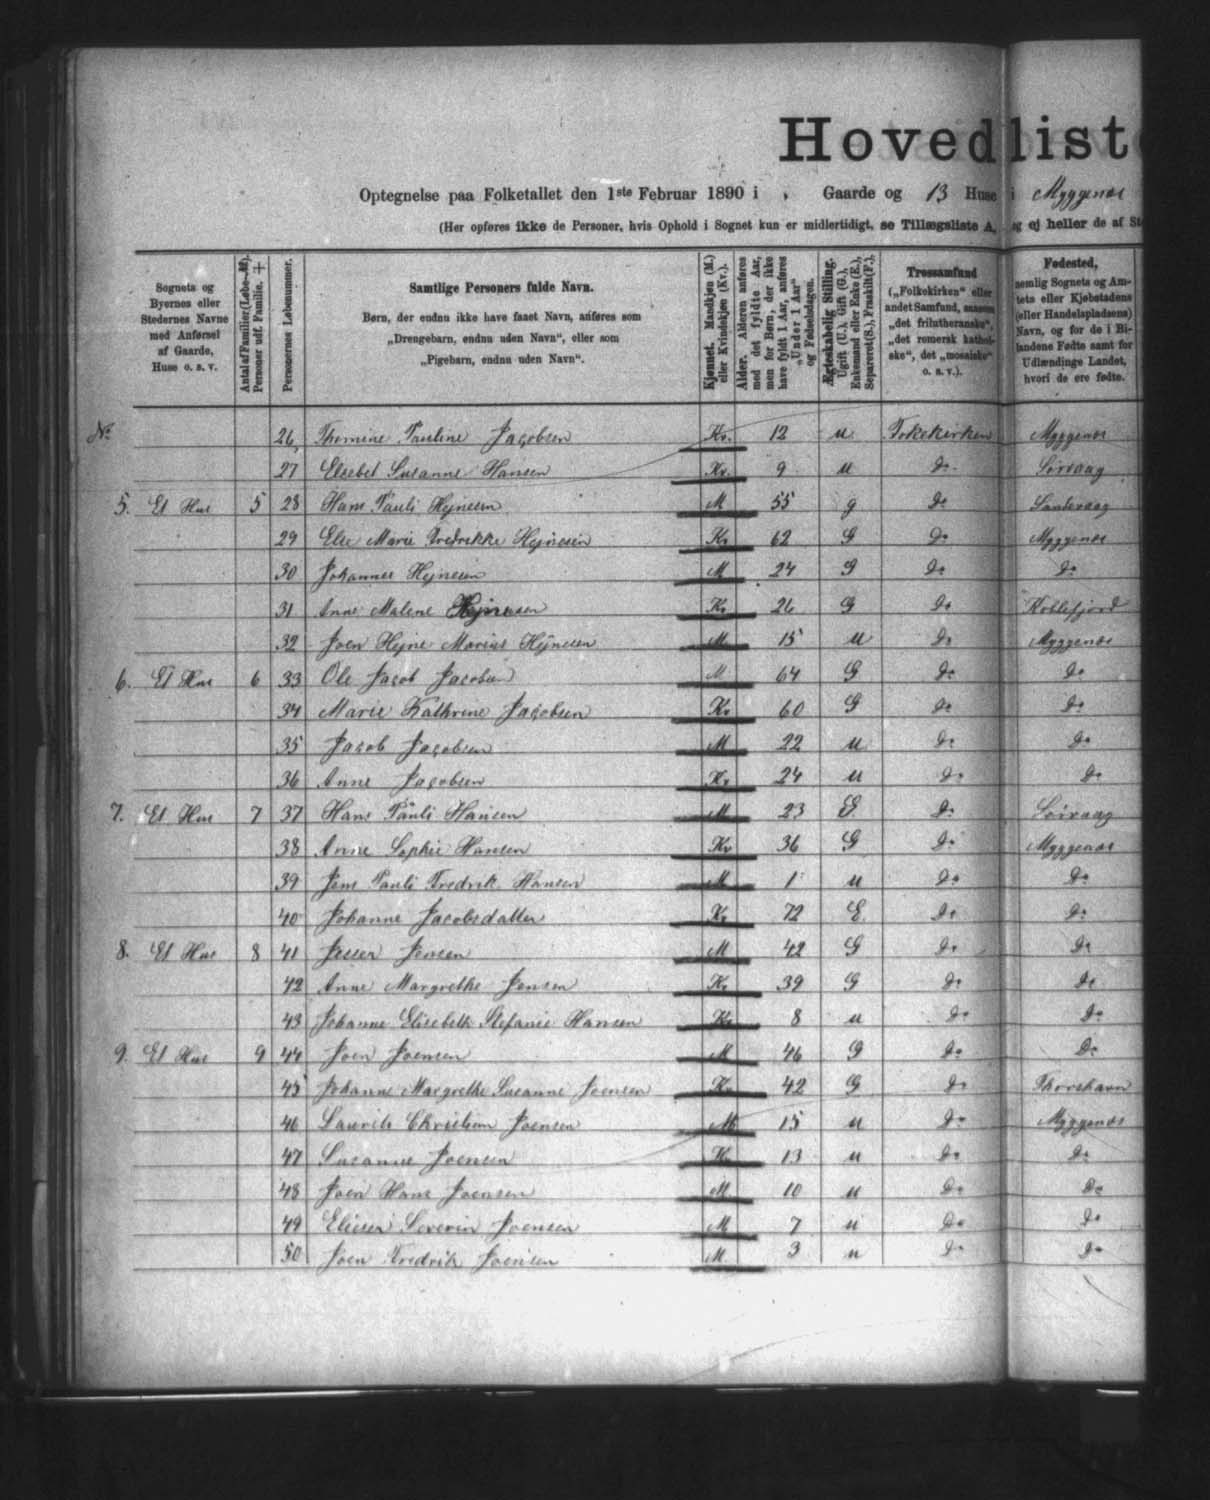 Hovedliste
Optegnelse paa Folketallet den 1ste Februar 1890 i , Gaarde og 13 Huse i Myggenæs
(Her opføres ikke de Personer, hvis Ophold i Sognet kun er midlertidigt, se Tillægsliste A, og ej heller de af
Sognets og Byernes eller Stedernes Navne med Anførsel af Gaarde, Huse o. s. v.
Antal af Familier (Løbe-No.) Personer udf. Familie. +
Personernes Løbenummer.
Samtlige Personers fulde Navn.
Børn, der endnu ikke have faaet Navn, anføres som
„Drengebarn, endnu uden Navn", eller som
„Pigebarn, endnu uden Navn".
Kjønnet. Mandkjøn (M.) eller Kvindekjøn (Kv.).
Alder. Alderen anføres med det fyldte Aar, men for Børn, der ikke have fyldt 1 Aar, anføres „Under 1 Aar" og Fødselsdagen.
Ægteskabelig Stilling. Ugift (U.), Gift (G.), Enkemand eller Enke (E.), Separeret (S.), Fraskilt (F.).
Trossamfund („Folkekirken" eller andet Samfund, saasom „det frilutheranske", „det romersk katholske", det „mosaiske" o. s. v.).
Fødested, nemlig Sognets og Amtets eller Kjøbstadens (eller Handelspladsens) Navn, og for de i Bilandene Fødte samt for Udlændinge Landet, hvori de ere fødte.
No 26 Thomine Pauline Jacobsen Kv. 12 u Folkekirken Myggenæs
27 Elsebet Susanne Hansen Kv. 9 u Do Sørvaag
5. Et Hus 5 28 Hans Pauli Hejnesen M 55 g Do Sandevaag
29 Else Marie Fredrikke Hejnesen Kv 62 G Do Myggenæs
30 Johannes Hejnesen M 24 G Do Do
31 Anne Malene Hejnesen Kv 26 G Do Kollefjord
32 Joen Hejne Marius Hejnesen M 15 u Do Myggenæs
6. Et Hus 6 33 Ole Jacob Jacobsen M 64 G Do Do
34 Marie Kathrine Jacobsen Kv 60 G Do Do
35 Jacob Jacobsen M 22 u Do Do
36 Anne Jacobsen Kv 24 u Do Do
7. Et Hus 7 37 Hans Pauli Hansen M 23 G Do Sørvaag
38 Anne Sophie Hansen Kv 36 G Do Myggenæs
39 Jens Pauli Fredrik Hansen M 1 u Do Do
40 Johanne Jacobsdatter Kv 72 E Do Do
8. Et Hus 8 41 Jesser Jensen M 42 G Do Do
42 Anne Margrethe Jensen Kv 39 G Do Do
43 Johanne Elisebeth Stefanie Hansen Kv 8 u Do Do
9. Et Hus 9 44 Joen Joensen M 46 G Do Do
45 Johanne Margrethe Susanne Joensen Kv 42 G Do Thorshavn
46 Laurits Christian Joensen M 15 u Do Myggenæs
47 Susanne Joensen Kv 13 u Do Do
48 Joen Hans Joensen M 10 u Do Do
49 Elieser Severin Joensen M 7 u Do Do
50 Joen Fredrik Joensen M. 3 u Do Do